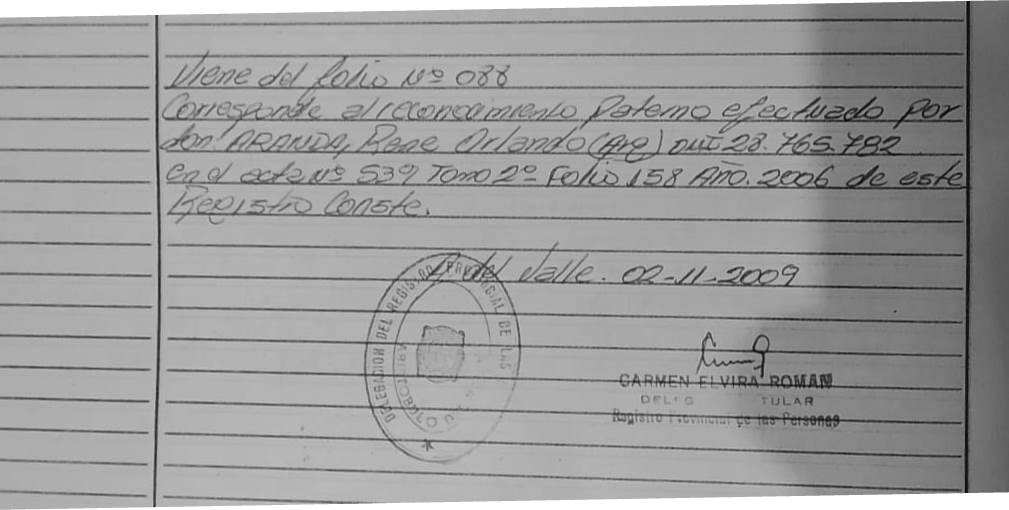 Viene del folio Nº 088
Corresponde al reconocimiento Paterno efectuado por
don: ARANDA, Rene Orlando (Arg) DNI 28.765.782
en el acta Nº 539 Tomo 2º Folio 158 Año. 2006 de este
Registro Conste.
del Valle. 02-11-2009
DELEGACION DEL REGISTRO PROVINCIAL DE LAS
CARMEN ELVIRA ROMAN
TULAR
Registro Provincial de las Personas